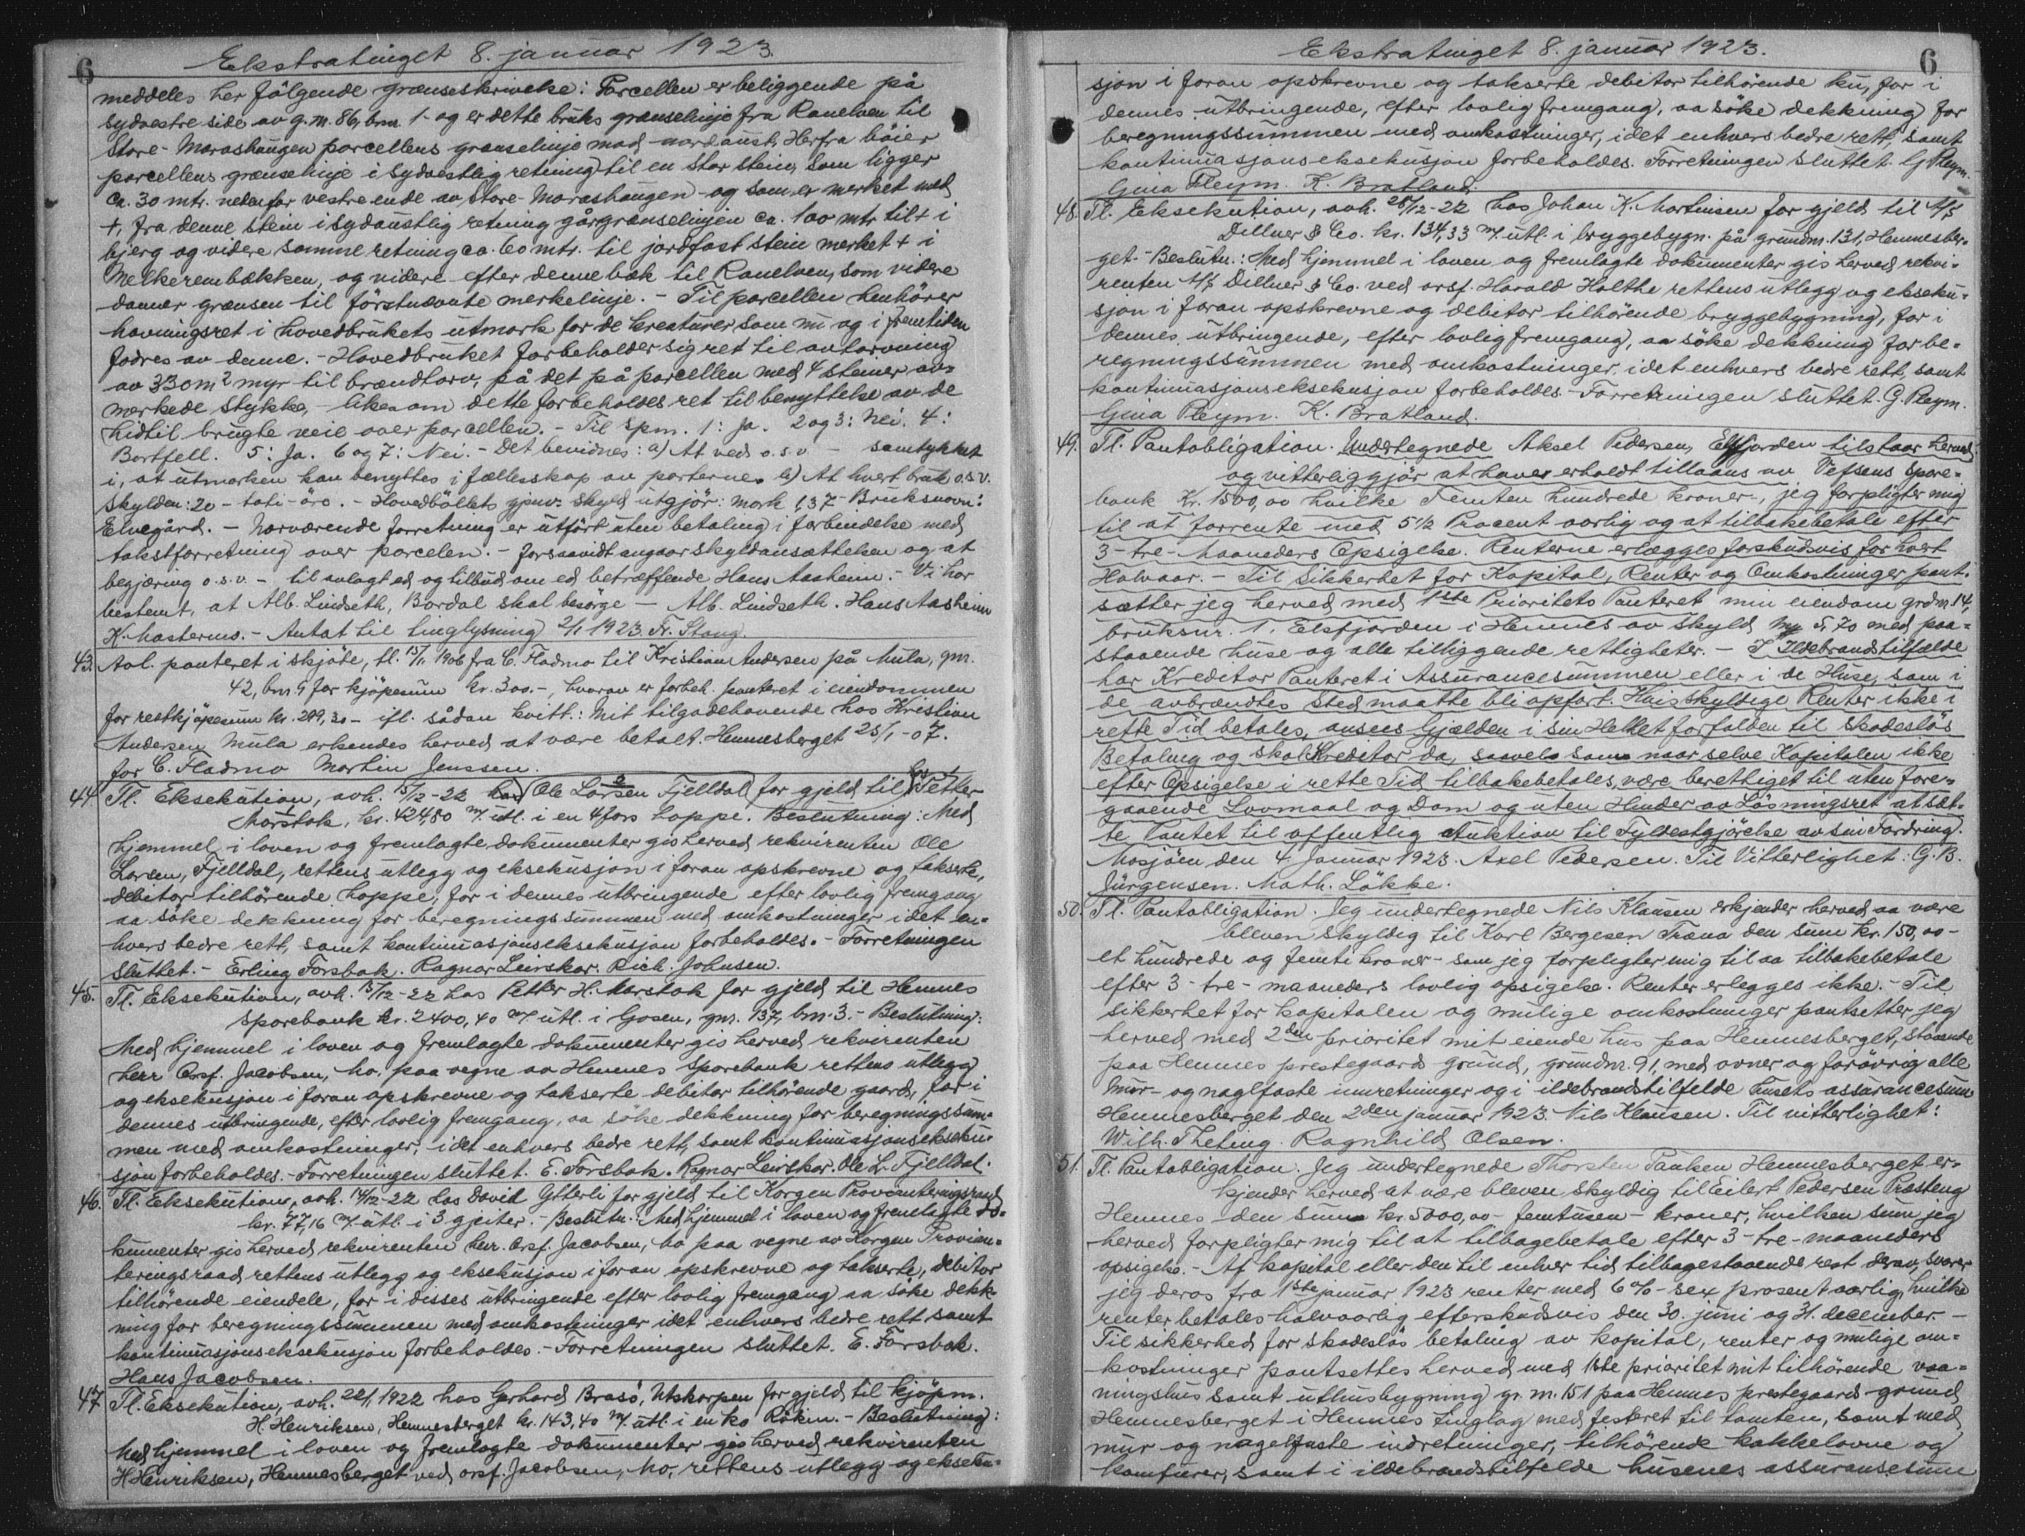 6
Ekstratinget 8. januar 1923.
meddeles her følgende grænseskrivelse: Parcellen er beliggende på
sydvestre side av g.m. 86, brnr. 1 - og er dette bruks grænselinje fra Ranelven til
Store-Marashaugen parcellens grænselinje mod nordaust. Herfra bøier
parcellens grænselinje i sydvestlig retning til en stor stein, som ligger
ca. 30 mtr. nedenfor vestre ende av Store-Marashaugen og som er merket med
+, fra denne stein i sydaustlig retning går grænselinjen ca. 100 mtr til + i
bjerg og videre samme retning ca. 60 mtr. til jordfast stein merket + i
Melkerembækken, og videre efter denne bæk til Ranelven, som videre
danner grænsen til førstnævnte merkelinje. - Til parcellen henhører
havningsret i hovedbrukets utmark for de kreaturer, som nu og i fremtiden
fødres av denne. - Hovedbruket forbeholder sig ret til avtorvning
av 330 m² myr til brændtorv, på det på parcellen med 4 steiner av-
merkede stykke, - likesom dette forbeholdes ret til benyttelse av de
hidtil brugte veie over parcellen. - Til spm. 1: Ja. 2 og 3: Nei. 4:
Bortfall. 5: Ja. 6 og 7: Nei. - Det bevidnes: a) At ved o.s.v. - samtykket
i, at utmarken kan benyttes i fællesskap av parterne. b) At hvert bruk o.s.v.
Skylden: 20 - toti - øre. - Hovedbøllets gjenv. skyld utgjør: mark 1,37 - Bruksnavn:
Elvegård. - Nærværende forretning er utført uten betaling i forbindelse med
takstforretning over parcelen. - forsaavidt angaar skyldansættelsen og at
begjæring o.s.v. - til avlagt ed og tilbud om ed betræffende Hans Aasheim. - Vi har
bestemt, at Alb. Lindseth, Bardal skal besørge - Alb. Lindseth. Hans Aasheim
K. Mastermo. - Antat til tinglysning 2/1 1923. Fr. Stang.
43. Avl. panteret i skjøte, tl. 15/1 1906 fra C. Fladmo til Kristian Andersen på Mula, gnr.
42, bnr. 9 for kjøpesum kr. 300.-, hvorav er forbeh. panteret i eiendommen
for restkjøpesum kr. 209,30 - ifl. sådan kvitt.: Mit tilgodehavende hos Kristian
Andersen Mula erkendes herved at være betalt. Hemnesberget 25/1-07.
for C. Fladmo Martin Jenssen.
44. Tl. Eksekution, avh. 15/12-22 hos Ole Larsen Fjelldal for gjeld til hos Petter
Marstok, kr. 424,50 m/ utl. i en 4 års hoppe. Beslutning: Med
hjemmel i loven og fremlagte dokumenter gis herved rekvirenten Ole
Larsen, Fjelldal, rettens utlegg og eksekusjon i foran opskrevne og takserte,
debitor tilhörende hoppe, for i dennes utbringende efter lovlig fremgang
aa söke dekkning for beregningssummen med omkostninger idet en-
hvers bedre rett, samt kontinuasjonseksekusjon forbeholdes. - Forretningen
sluttet. - Erling Forsbak. Ragnar Leirskar. Rich. Johnsen.
45. Tl. Eksekution, avh. 15/12-22 hos Petter H. Marstok for gjeld til Hemnes
Sparebank kr. 2400,40 m/ utl. i Gosen, gnr. 137, bnr. 3. - Beslutning:
Med hjemmel i loven og fremlagte dokumenter gis herved rekvirenten
herr Orsf. Jacobsen, ho. paa vegne av Hemnes Sparebank rettens utlegg
og eksekusjon i foran opskrevne og takserte debitor tilhörende gaard, for i
dennes utbringende, efter lovlig fremgang, aa söke dekkning for beregningssum-
men med omkostninger, idet enhvers bedre rett, samt kontinuasjonseksekus-
sjon forbeholdes. - Forretningen sluttet. E. Forsbak. Ragnar Leirskar. Ole L. Fjelldal.
46. Tl. Eksekution, avh. 14/12-22 hos David Ytterli for gjeld til Korgen Provianteringsraad
kr. 77,16 m/ utl. i 3 gjeiter. - Beslutn.: Med hjemmel i loven og fremlagte do-
kumenter gis herved rekvirenten herr Orsf. Jacobsen, ho paa vegne av Korgen Provian-
teringsraad rettens utlegg og eksekusjon i foran opskrevne og takserte, debitor
tilhörende eiendele, for i disses utbringende efter lovlig fremgang aa söke dekk-
ning for beregningssummen med omkostninger idet enhvers bedre rett samt
kontinuasjonseksekusjon forbeholdes. - Forretningen sluttet. E. Forsbak.
Hans Jacobsen.
47. Tl. Eksekution, avh. 22/1 1922 hos Gerhard Brasö, Utskarpen for gjeld til kjöpm.
H. Henriksen, Hemnesberget kr. 143,40 m/ utl. i en ko Rökin. - Beslutning:
Med hjemmel i loven og fremlagte dokumenter gis herved rekvirenten
H. Henriksen, Hemnesberget ved orsf. Jacobsen, Mo, rettens utlegg og ekseku-
6
Ekstratinget 8. januar 1923.
sjon i foran opskrevne og takserte debitor tilhørende ku, for i
dennes utbringende, efter lovlig fremgang, aa söke dekkning for
beregningssummen med omkostninger, idet enhvers bedre rett, samt
kontinuasjonseksekusjon forbeholdes. Forretningen sluttet. G. Pleym.
Gina Pleym. K. Bratland.
48. Tl. Eksekution, avh. 28/12-22 hos Johan K. Martinsen for gjeld til A/S
Dillner & Co. kr. 134,33 m/ utl. i bryggebygn. på grundnr. 131, Hemnesber-
get - Beslutn.: Med hjemmel i loven og fremlagte dokumenter gis herved rekvi-
renten A/S Dillner & Co. ved orsf. Harald Holthe rettens utlegg og ekseku-
sjon i foran opskrevne og debitor tilhörende bryggebygning, for i
dennes utbringende, efter lovlig fremgang, aa söke dekkning for be-
regningssummen med omkostninger, idet enhvers bedre rett, samt
kontinuasjonseksekusjon forbeholdes. - Forretningen sluttet. G. Pleym.
Gina Pleym. K. Bratland.
49. Tl. Pantobligation. Undertegnede Aksel Pedersen, Elsfjorden tilstaar herved
og vitterliggjör at have erholdt tillaans av Vefsens Spare-
bank Kr. 1500,00 hvilke Femten hundrede kroner -, jeg forpligter mig
til at forrente med 5 1/2 Procent aarlig og at tilbakebetale efter
3 - tre - Maaneders Opsigelse. Renterne erlægges forskudsvis for hvert
Halvaar. - Til Sikkerhet for Kapital, Renter og Omkostninger pant-
sætter jeg herved med 1ste Prioritets Panteret min eiendom grdnr. 14,
bruksnr. 1, Elsfjorden i Hemnes av skyld My 5,70 med paa-
staaende huse og alle tilliggende rettigheter. - I Ildebrandstilfælde
har Kreditor Panteret i Assurancesummen eller i de Huse, som i
de avbrændtes Sted maatte bli opført. Hvis skyldige Renter ikke i
rette Tid betales, ansees Gjælden i sin Helhet forfalden til skadesløs
Betaling og skal Kreditor da, saavel som naar selve Kapitalen ikke
efter Opsigelse i rette Tid tilbakebetales, være berettiget til uten fore-
gaaende Lovmaal og Dom og uten Hinder av Løsningsret at sæt-
te Pantet til offentlig Auktion til Fyldestgjørelse av sin Fordring.
Mosjøen den 4 Januar 1923. Axel Pedersen. Til Vitterlighet: G.B.
Jürgensen. Math. Lökke.
50. Tl. Pantobligation. Jeg undertegnede Nils Klausen erkjender herved aa være
bleven skyldig til Karl Bergesen Træna den sum kr. 150,00 -
et hundrede og femti kroner - som jeg forpligter mig til aa tilbakebetale
efter 3 - tre - maaneders lovlig opsigelse. Renter erlegges ikke. - Til
sikkerhet for kapitalen og mulige omkostninger pantsetter jeg
herved med 2den prioritet mit eiende hus paa Hemnesberget, staaende
paa Hemnes prestegaards grund, grundnr. 91, med ovner og forövrig alle
mur- og naglfaste inretninger og i ildebrandstilfelde husets assurancesum
Hemnesberget den 2den januar 1923. Nils Klausen. Til vitterlighet:
Wilh. Theting. Ragnhild Olsen.
51. Tl. Pantobligation. Jeg undertegnede Thorsten Paulsen Hemnesberget er-
kjender herved at være bleven skyldig til Eilert Pedersen Præsteng
Hemnes den sum kr. 5000,00 - femtusen - kroner, hvilken sum jeg
herved forpligter mig til at tilbagebetale efter 3 - tre - maaneders
opsigelse. - Af kapital eller den til enhver tid tilbagestaaende rest derav, svarer
jeg deras fra 1ste januar 1923 renter med 6 % - sex prosent aarlig, hvilke
renter betales halvaarlig efterskudsvis den 30. juni og 31. december. -
Til sikkerhed for skadeslös betaling av kapital, renter og mulige om-
kostninger pantsettes herved med 1ste prioritet mit tilhörende vaa-
ningshus samt uthusbygning gr. nr. 151 paa Hemnes prestegaards grund,
Hemnesberget i Hemnes tinglag med festeret til tomten, samt med
mur og nagelfaste indretninger, tilhörende kakkelovne og
komfurer, samt i ildebrandstilfelde husenes assuransesum